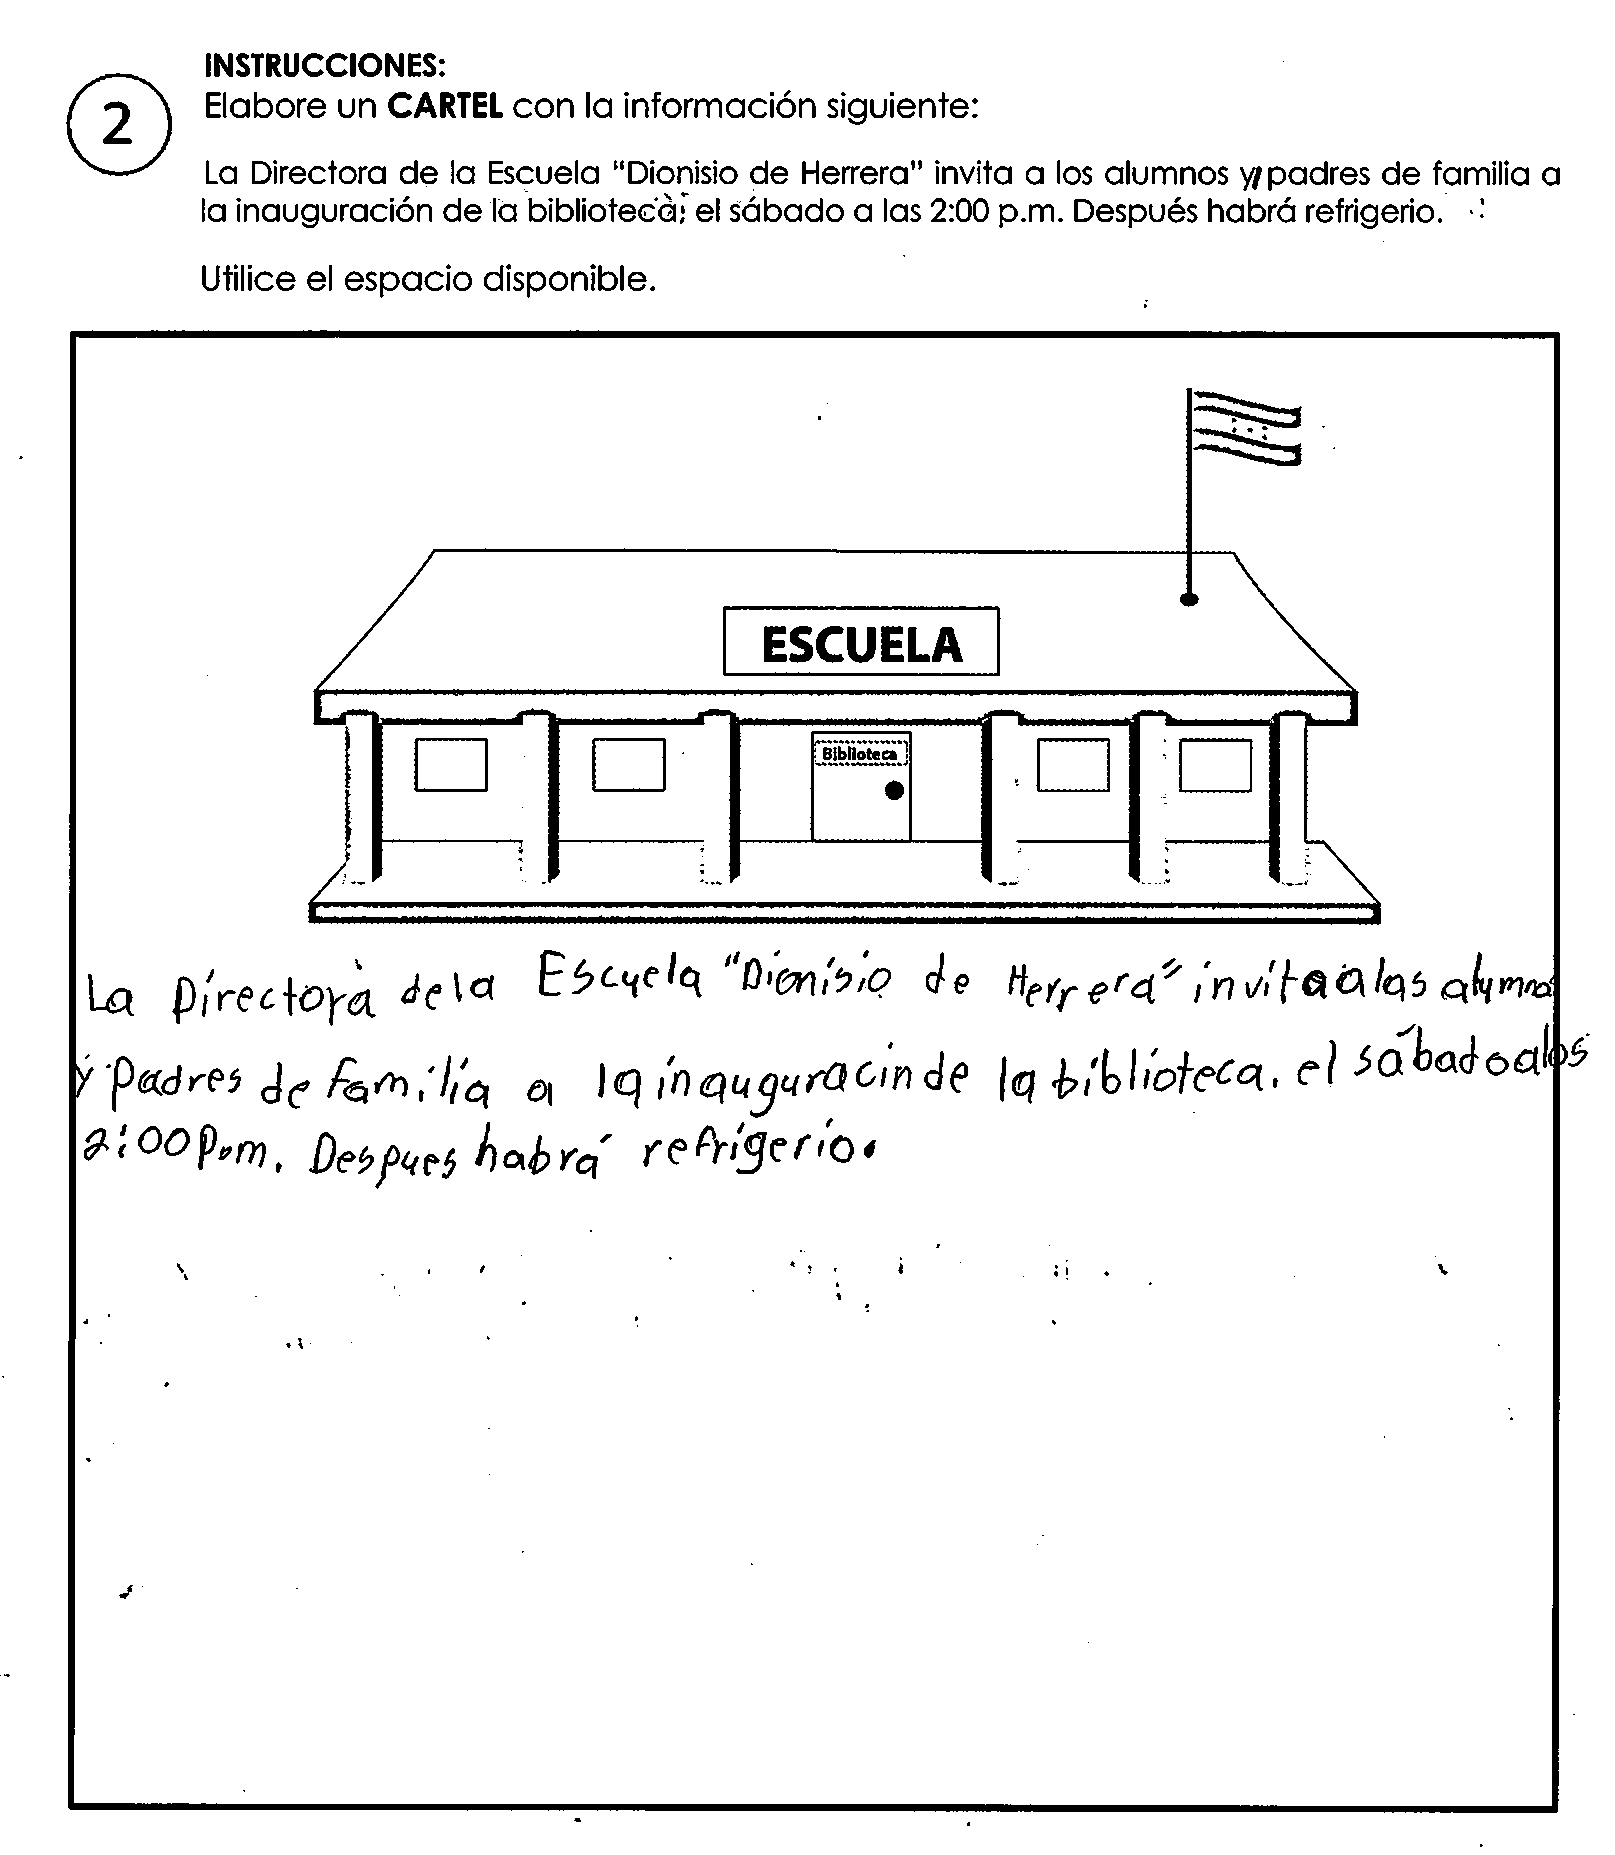 INSTRUCCIONES:
2
Elabore un CARTEL con la información siguiente:
La Directora de la Escuela "Dionisio de Herrera" invita a los alumnos y padres de familia a
la inauguración de la biblioteca, el sábado a las 2:00 p.m. Después habrá refrigerio.
Utilice el espacio disponible.
ESCUELA
Biblioteca
La Directora de la Escuela "Dionisio de Herrera" invita a las alumnos
y padres de familia a la inauguracin de la biblioteca. el sábado a los
2:00 p.m. Despues habrá refrigerio.